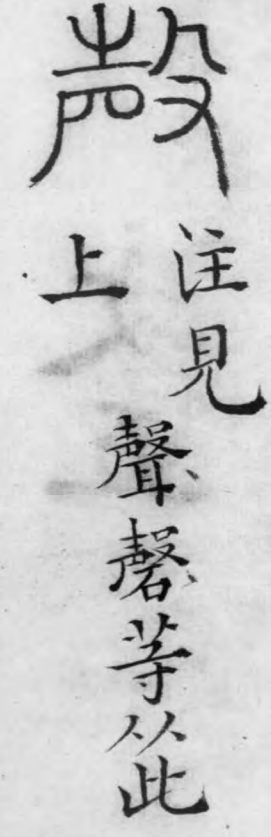 殸
注見
上
聲磬等从此